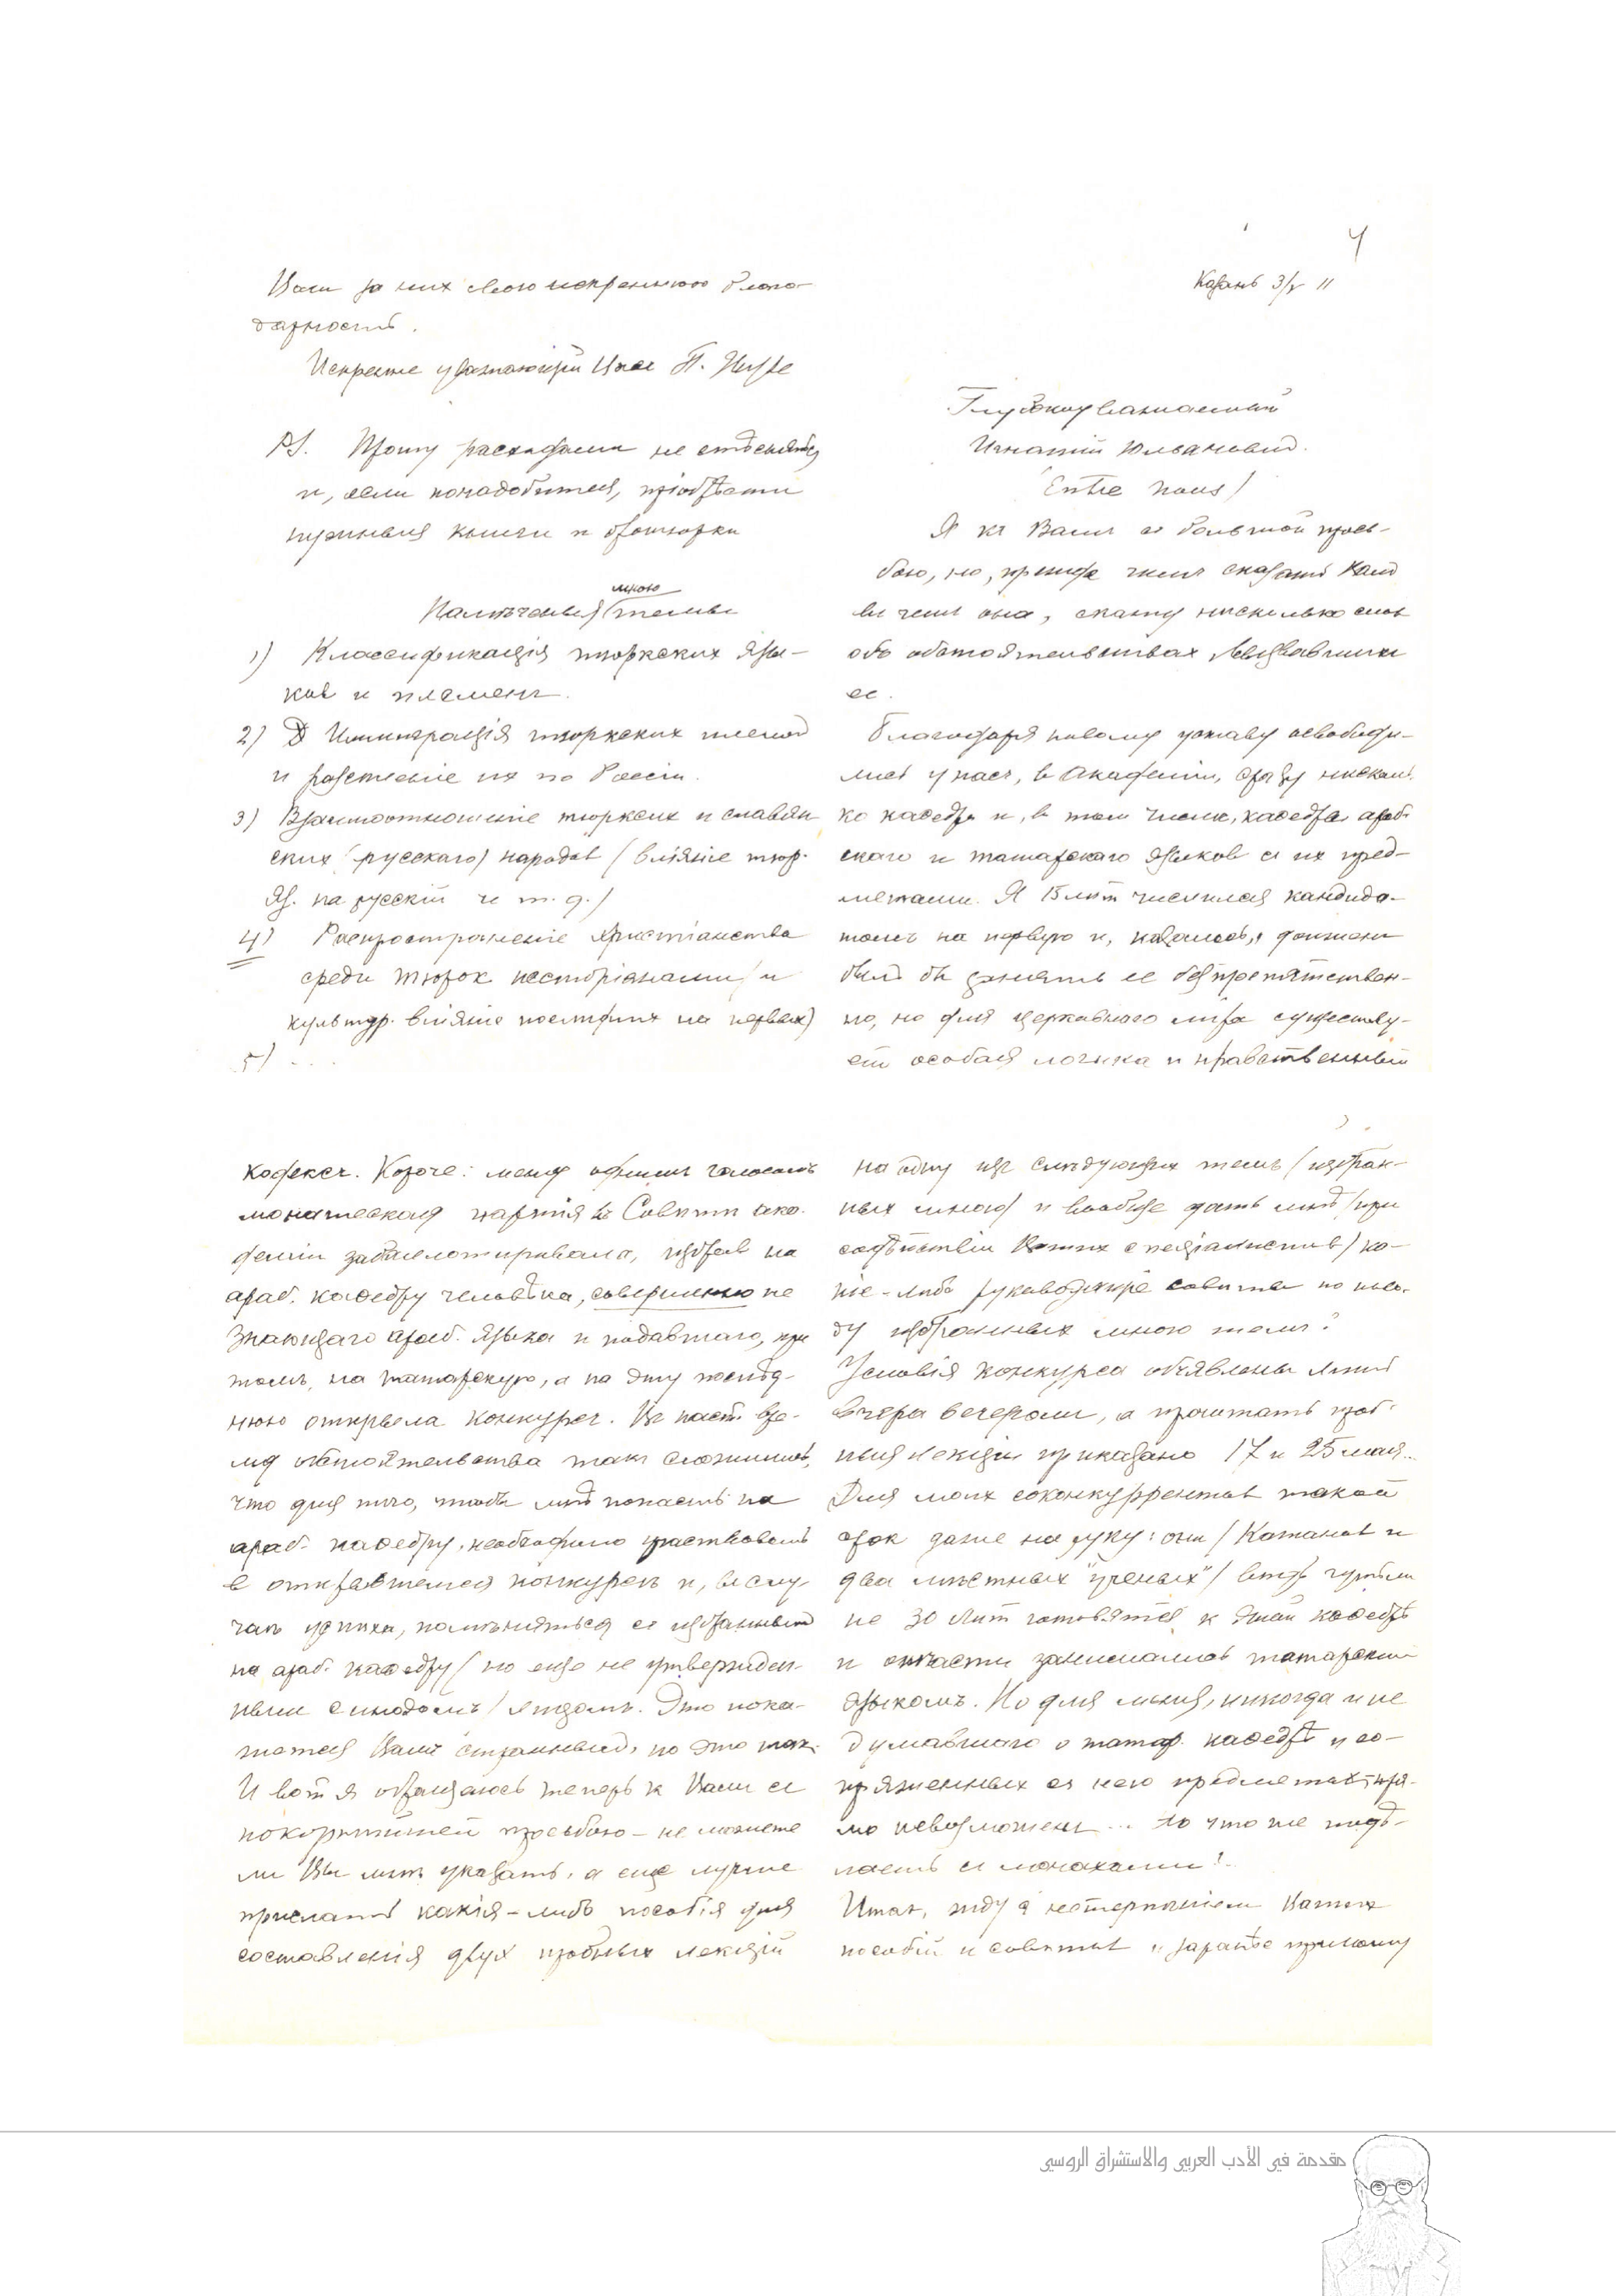 4
Казань 3/V 11
Глубокоуважаемый
Игнатий Юльянович.
(Entre nous)
Я къ Вамъ съ большой прось-
бою, но, прежде чемъ сказать Вамъ
въ чемъ она, скажу нѣсколько словъ
объ обстоятельствахъ, вызвавшихъ
ее.
Благодаря новому уставу освободи-
лись у насъ, в Академіи, сразу нѣсколь-
ко кафедръ и, в томъ числѣ, кафедра араб-
скаго и татарскаго языковъ съ их пред-
метами. Я лѣт числился кандида-
томъ на первую и, казалось, долженъ
былъ бы занять ее безпрепятствен-
но, но для церковного мира существу-
етъ особая логика и нравственный
кодексъ. Короче: меня однимъ голосомъ
монашеская партія въ Совѣтѣ ака-
деміи забаллотировала, избрав на
араб. кафедру человѣка, совершенно не
знающаго араб. языка и подавшаго, при
томъ, на татарскую, а на эту послѣд-
нюю открыла конкурсъ. Въ наст. вре-
мя обстоятельства такъ сложились,
что для того, чтобы мнѣ попасть на
араб. кафедру, необходимо участвовать
в открывшемся конкурсѣ и, въ слу-
чаѣ успѣха, помѣняться съ избраннымъ
на араб. кафедру (но еще не утвержден-
нымъ синодомъ) лицомъ. Это пока-
жется Вамъ страннымъ, но это так.
И вот я обращаюсь теперь къ Вамъ съ
покорнѣйшей просьбою – не можете
ли Вы мнѣ указать, а еще лучше
прислать какія-либо пособія для
составленія двух пробныхъ лекцій
на одну изъ слѣдующихъ темъ (избран-
ныхъ мною) и вообще дать мнѣ (при
содѣйствіи Вашихъ спеціалистовъ) ка-
кіе-либо руководящіе совѣты по пово-
ду избранныхъ мною темъ?
Условія конкурса объявлены лишь
вчера вечеромъ, а прочитать проб-
ныя лекціи приказано 17 и 25 мая...
Для моихъ соконкуррентов такой
срок даже на руку: они (Катанов и
два мѣстных "ученых") вѣдь чуть ли
не 30 лѣт готовятся к этой кафедрѣ
и отчасти занимались татарским
языкомъ. Но для меня, никогда и не
думавшаго о татар. кафедрѣ и со-
пряженныхъ съ нею предметахъ, пря-
мо невозможенъ... Но что же подѣ-
лаешь съ монахами!..
Итак, жду с нетерпѣніем Вашихъ
пособій и совѣтовъ и заранѣе приношу
Вам за них свою искреннюю благо-
дарность.
Искренне уважающій Васъ П. Жузе
P.S. Прошу расходами не стѣсняться
и, если понадобится, пріобрѣсти
нужныя книги и брошюрки
Намѣченныя мною темы
1) Классификація тюркских язы-
ков и племенъ.
2) Иммиграція тюркских племенъ
и разселеніе их по Россіи.
3) Взаимоотношеніе тюркских и славян-
ских (русскаго) народов (вліяніе тюр.
яз. на русскій и т. д.)
4) Распространеніе христіанства
среди тюрок несторіанами (и
культур. вліяніе послѣдних на первых)
5) ...
مقدمة في الأدب العربي والاستشراق الروسي